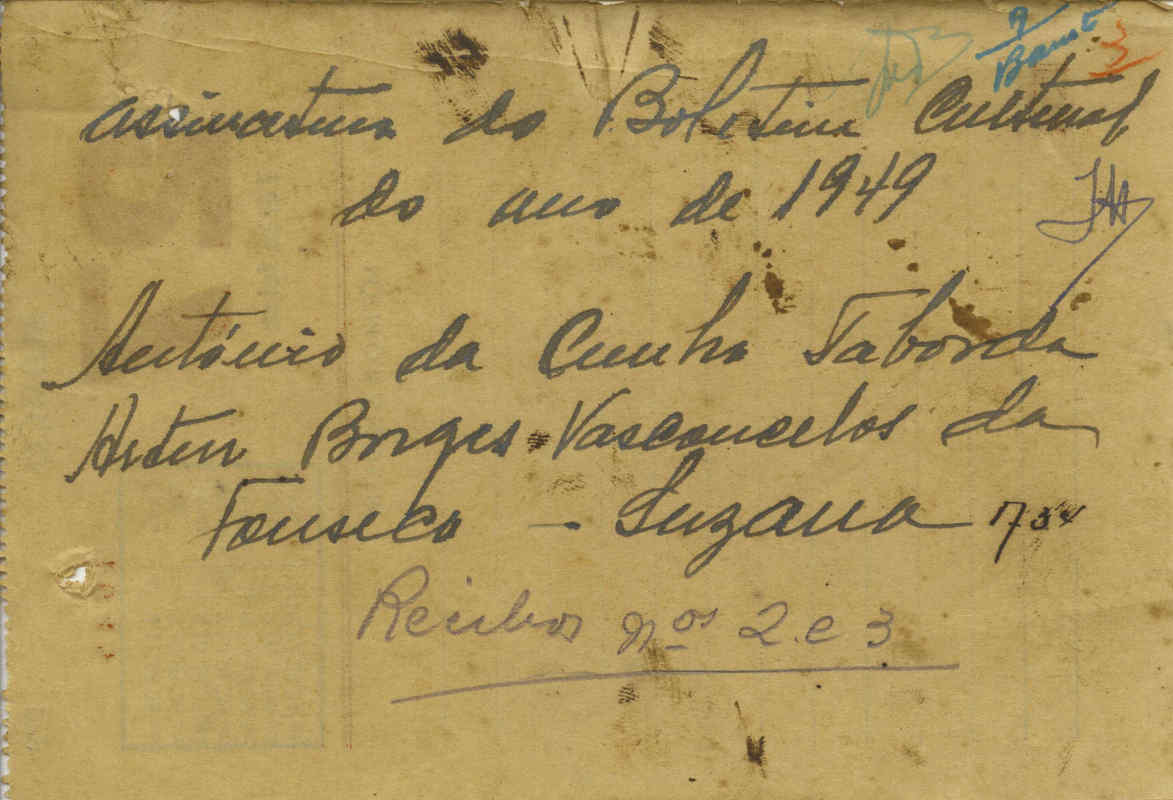 3
assinatura do Boletim Cultural
do ano de 1949
António da Cunha Taborda
Artur Borges Vasconcelos da
Fonseca - Suzana
Recibos nos 2 e 3